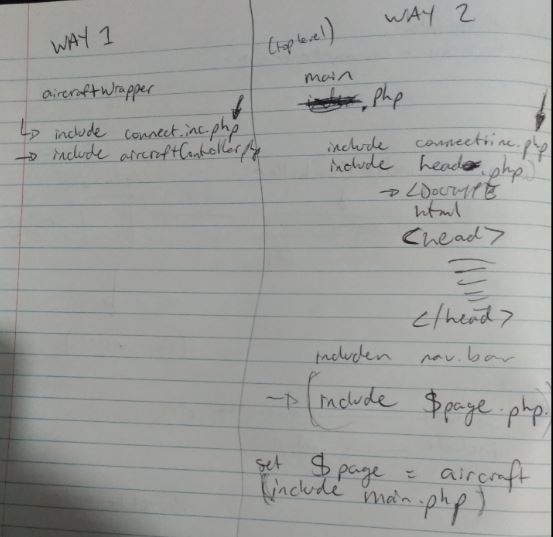 WAY 1
aircraftWrapper
↳ include connect.inc.php
→ include aircraftController.php
WAY 2
(top level)
main
.php
include connect.inc.php
include head.php)
→ <DOCTYPE
html
<head>
</head>
include nav.bar
→ (include $page.php.
set $page = aircraft
(include main.php)